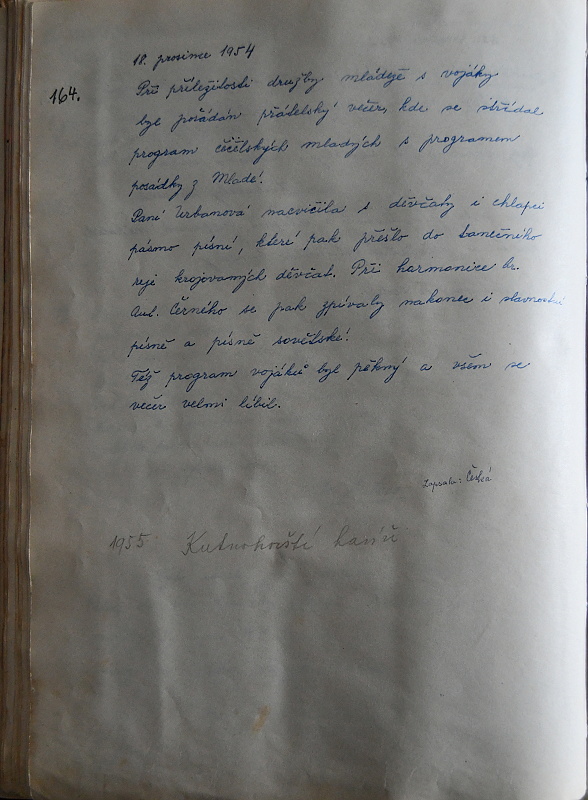 18. prosince 1954
164.
Při příležitosti družby mládeže s vojáky
byl pořádán přátelský večer, kde se střídal
program čéčelských mladých s programem
posádky z Mladé.
Paní Urbanová nacvičila s děvčaty i chlapci
pásmo písní, které pak přešlo do tanečního
reje krojovaných děvčat. Při harmonice br.
Ant. Černého se pak zpívaly nakonec i slavnostní
písně a písně sovětské.
Též program vojáků byl pěkný a všem se
večer velmi líbil.
Zapsala: Česká
1955 Kutnohorští havíři